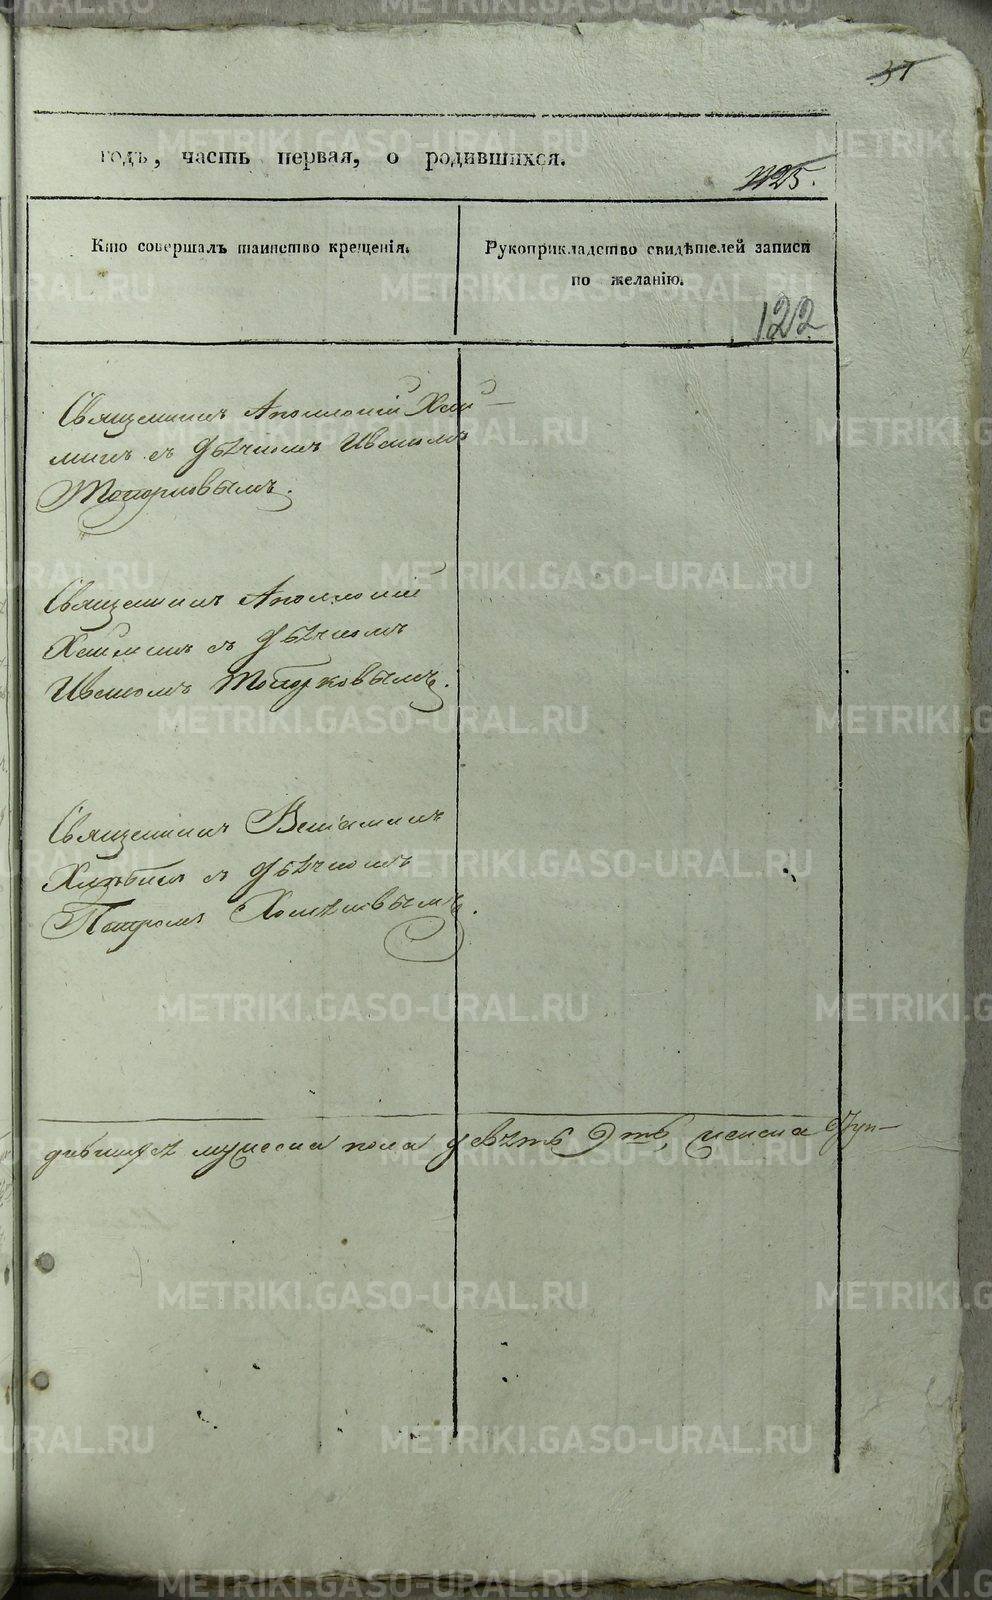 37
годъ, часть первая, о родившихся.
1125.
Кто совершалъ таинство крещенія.
Рукоприкладство свидѣтелей записи
по желанію.
122
Священникъ Аполлоній
съ дьячкомъ Иваномъ
Топорковымъ.
Священникъ Аполлоній
съ дьячкомъ
Иваномъ Топорковымъ.
Священникъ Веніаминъ
съ дьячкомъ
Петромъ
мужеска пола девять 9ть, женска
METRIKI.GASO-URAL.RU